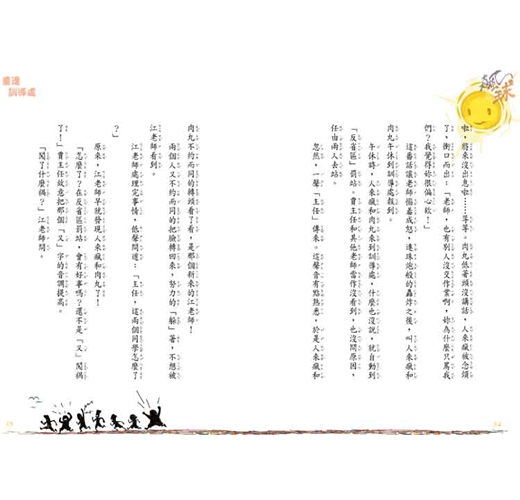 啦，將來沒出息啦……等等。肉丸低著頭沒講話，人來瘋被念煩
了，衝口而出：「老師，也有別人沒交作業啊，妳為什麼只罵我
們？我覺得妳很偏心欸！」
這番話讓老師惱羞成怒，連珠炮般的轟炸之後，叫人來瘋和
肉丸午休到訓導處報到。
午休時，人來瘋和肉丸來到訓導處，什麼也沒說，就自動到
「反省區」罰站。賣主任和其他老師當作沒看到，也沒問原因，
任由兩人去站。
忽然，一聲「主任」傳來。這聲音有點熟悉，於是人來瘋和
34
重建
訓導處
肉丸不約而同的轉頭看了看，是那個新來的江老師！
兩個人又不約而同的把臉轉回來，努力的「躲」著，不想被
江老師看到。
江老師處理完事情，低聲問道：「主任，這兩個同學怎麼了
？」
原來，江老師早就發現人來瘋和肉丸了！
「怎麼了？在反省區罰站，會有好事嗎？還不是「又」闖禍
了！」賣主任故意把那個「又」字的音調提高。
「闖了什麼禍？」江老師問。
35